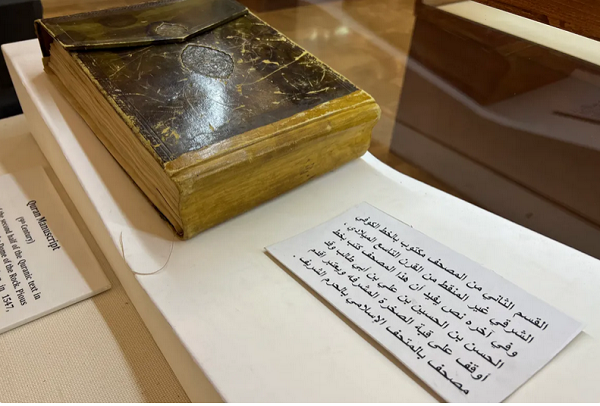 Quran Manuscript
(9th Century)
the second half of the Quranic text in
Dome of the Rock. Pious
in 1547,
القسم الثاني من المصحف مكتوب بالخط الكوفي
الشرقي غير المنقط من القرن التاسع الميلادي.
وفي آخره نص يفيد ان هذا المصحف كتب بخط
الحسن بن الحسين بن علي بن ابي طالب وقد
أوقف على قبة الصخرة المشرفة ويعتبر اقدم
مصحف بالمتحف الإسلامي بالحرم الشريف.